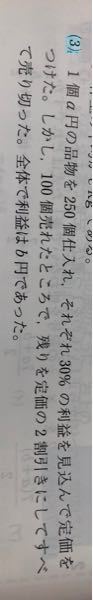 である。
(3) 1個a円の品物を250個仕入れ, それぞれ30%の利益を見込んで定価を
つけた。しかし, 100個売れたところで, 残りを定価の2割引きにしてすべ
て売り切った。全体で利益はb円であった。